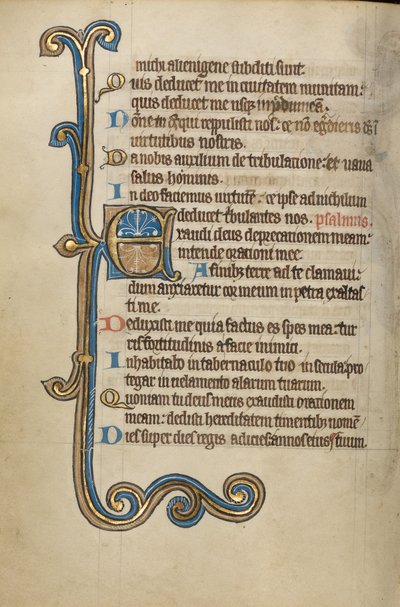 michi alienigene subditi sunt.
Quis deducet me in civitatem munitam:
quis deducet me usq; in ydumeā.
Nōne tu
virtutibus nostris.
Da nobis auxilium de tribulatione: et vana
salus hominis.
In deo faciemus virtutē: et ipse ad nichilum
deducet tbulantes nos. psalmus.
Exaudi deus deprecationem meam:
intende orationi mee.
A finib; terre ad te clamavi:
dum anxiaretur cor meum in petra exaltas
ti me.
Deduxisti me quia factus es spes mea: tur
ris fortitudinis a facie inimici.
Inhabitabo in tabernaculo tuo in secula: pro
tegar in velamento alarum tuarum.
Quoniam tu deus meus exaudisti orationem
meam: dedisti hereditatem timentibus nomē
Dies super dies regis adicies: annos eius tuum.